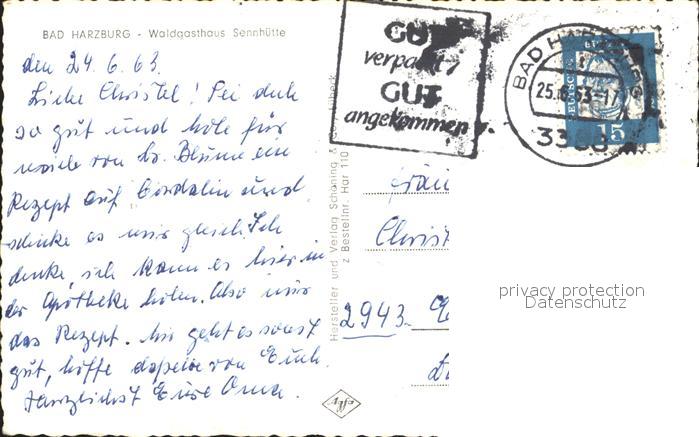 BAD HARZBURG - Waldgasthaus Sennhütte
den 24. 6. 63.
Liebe Christel! Sei doch
so gut und hole für
mich von Dr. Blume ein
Rezept auf Cordalin und
schicke es mir gleich. Ich
denke, ich kann es hier in
der Apotheke holen. Also nur
das Rezept. Mir geht es sonst
gut, hoffe dasselbe von Euch.
Herzlichst Eure Oma.
Hersteller und Verlag Schöning Lübeck
z Bestellnr. Har 110
GUT
verpackt,
GUT
angekommen
BAD HARZBURG
25. 63-17
3388
DEUTSCHE
15
Fräu
Christ
2943.
privacy protection
Datenschutz